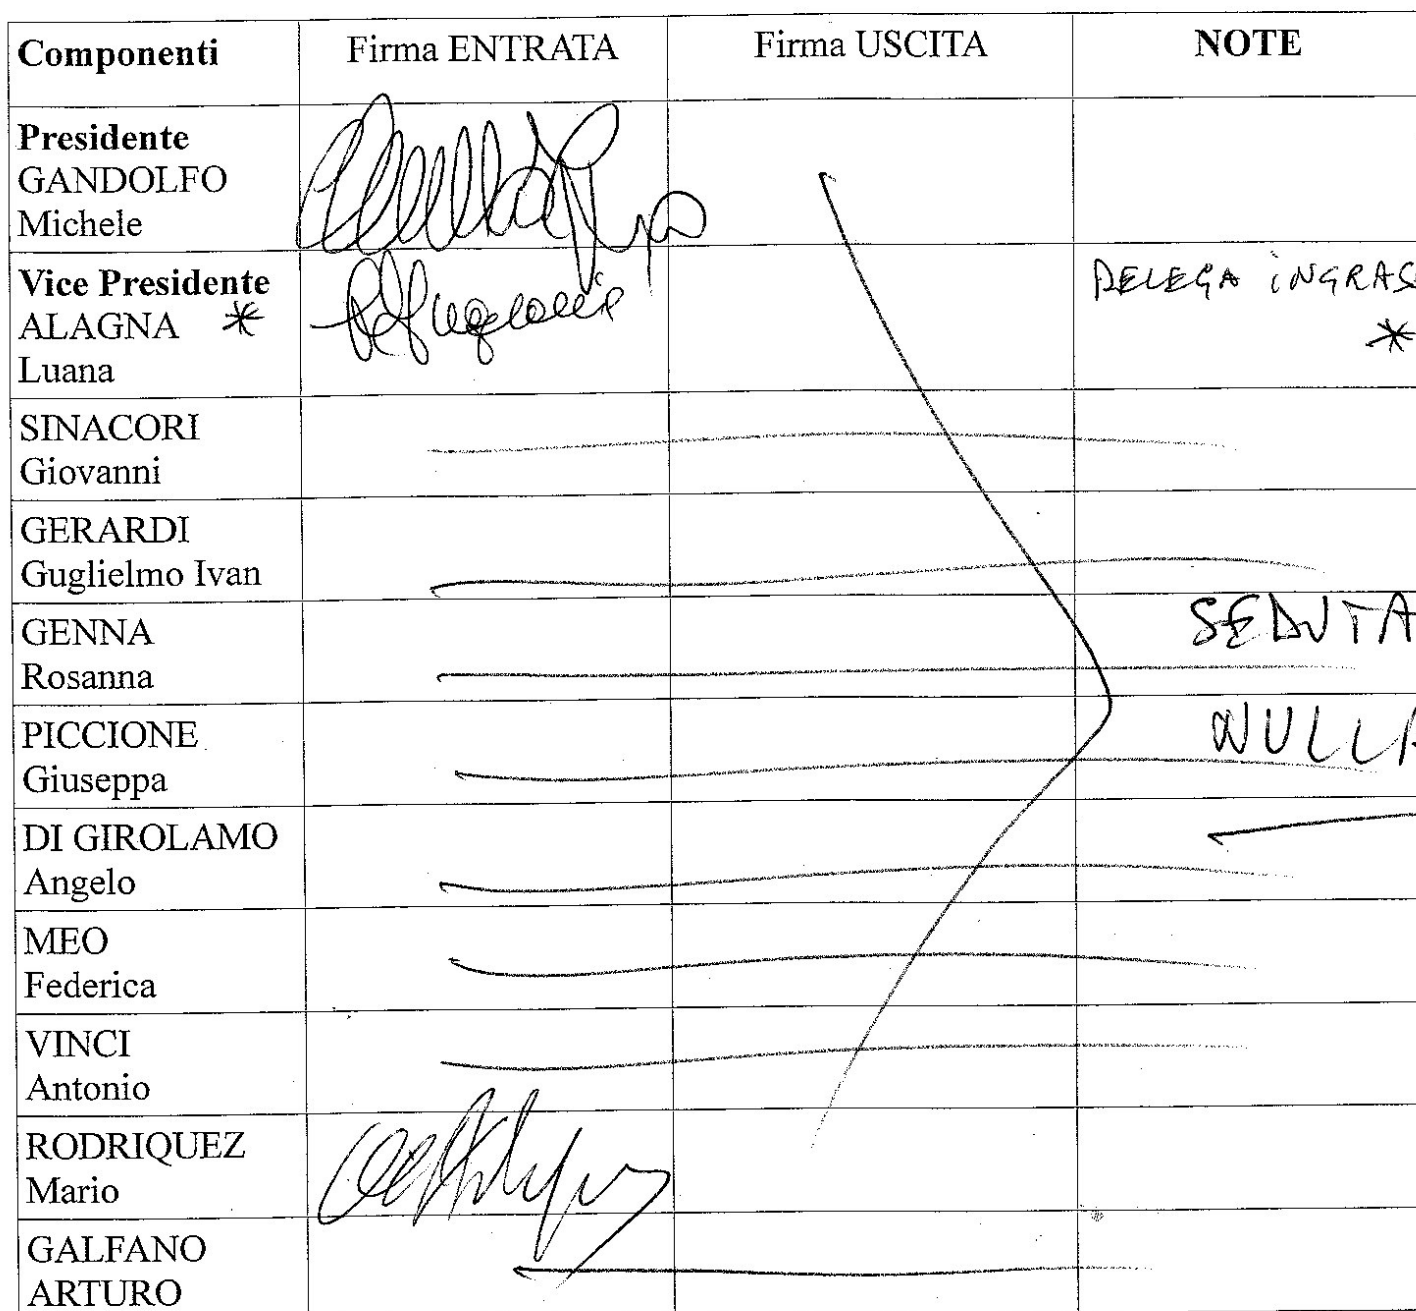 Componenti Firma ENTRATA Firma USCITA NOTE
Presidente
GANDOLFO
Michele
Vice Presidente DELEGA INGRASS
ALAGNA * *
Luana
SINACORI
Giovanni
GERARDI
Guglielmo Ivan
GENNA SEDUTA
Rosanna
PICCIONE NULLA
Giuseppa
DI GIROLAMO
Angelo
MEO
Federica
VINCI
Antonio
RODRIQUEZ
Mario
GALFANO
ARTURO